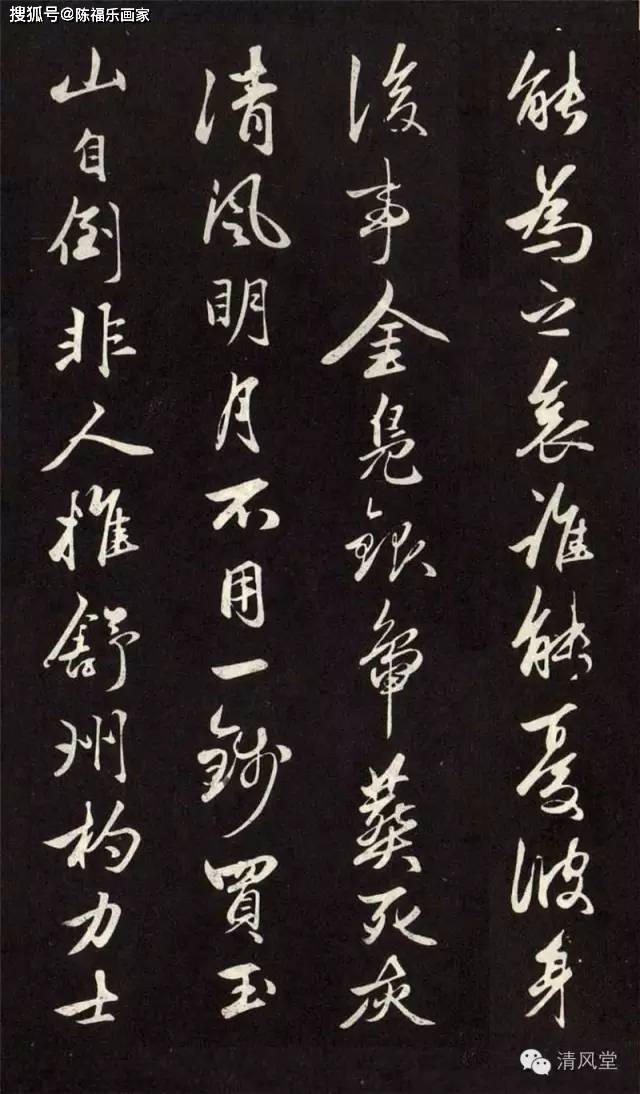 搜狐号@陈福乐画家
能為之哀誰能憂彼身
後事金鳧銀鴨葬死灰
清風明月不用一錢買玉
山自倒非人推舒州杓力士
清风堂